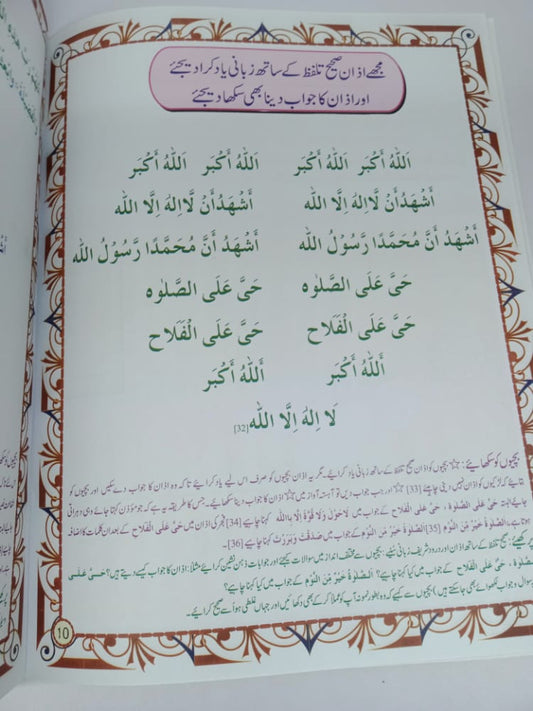 مجھے اذان صحیح تلفظ کے ساتھ زبانی یاد کرا دیجئے
اور اذان کا جواب دینا بھی سکھا دیجئے
اَللّٰهُ أَكۡبَر اَللّٰهُ أَكۡبَر اَللّٰهُ أَكۡبَر اَللّٰهُ أَكۡبَر
أَشۡهَدُ أَنۡ لَّا اِلٰهَ اِلَّا الله أَشۡهَدُ أَنۡ لَّا اِلٰهَ اِلَّا الله
أَشۡهَدُ أَنَّ مُحَمَّدًا رَّسُوۡلُ الله أَشۡهَدُ أَنَّ مُحَمَّدًا رَّسُوۡلُ الله
حَىَّ عَلَى الصَّلٰوه حَىَّ عَلَى الصَّلٰوه
حَىَّ عَلَى الۡفَلَاح حَىَّ عَلَى الۡفَلَاح
أَللّٰهُ أَكۡبَر أَللّٰهُ أَكۡبَر
لَا اِلٰهَ اِلَّا الله [32]
بچیوں کو سکھائیے: ☆ بچیوں کو اذان صحیح تلفظ کے ساتھ زبانی یاد کرائیے۔ مگر یہ اذان بچیوں کو صرف اس لیے یاد کرائیے تاکہ وہ اذان کا جواب دے سکیں اور بچیوں کو
بتائیے کہ لڑکیوں کو اذان نہیں دینی چاہئے [33] ☆ اور جب جواب دیں تو آہستہ آواز میں ☆ اذان کا جواب دینا سکھائیے۔ جس کا طریقہ یہ ہے کہ جو مؤذن کہتا جائے وہی دہرانی
چاہئے البتہ حَىَّ عَلَى الصَّلٰوة ، حَىَّ عَلَى الۡفَلَاح کے جواب میں لَا حَوۡلَ وَلَا قُوَّةَ اِلَّا بِاللّٰه کہنا چاہئے [34] فجر کی اذان میں حَىَّ عَلَى الۡفَلَاح کے بعد ان کلمات کا اضافہ
ہوتا ہے۔ الصَّلٰوةُ خَيۡرٌ مِّنَ النَّوۡم [35] الصَّلٰوةُ خَيۡرٌ مِّنَ النَّوۡم کے جواب میں صَدَقۡتَ وَبَرَرۡتَ کہنا چاہئے [36]۔
صحیح تلفظ کے ساتھ اذان اور درود شریف زبانی سنیے۔ بچیوں سے مختلف انداز میں سوالات کیجئے اور جوابات ذہن نشین کرائیے مثلاً: اذان کا جواب کیسے دیتے ہیں؟ حَىَّ عَلَى
الصَّلٰوة ، حَىَّ عَلَى الۡفَلَاح کے جواب میں کیا کہنا چاہئے؟ الصَّلٰوةُ خَيۡرٌ مِّنَ النَّوۡم کے جواب میں کیا کہنا چاہئے؟
سوال و جواب لکھوائے بھی جا سکتے ہیں) بچیوں سے کہئے کہ وہ بطور نمونہ آپ کو عملاً کر کے بھی دکھائیں اور جہاں غلطی ہو اُسے صحیح کرائیے۔
10